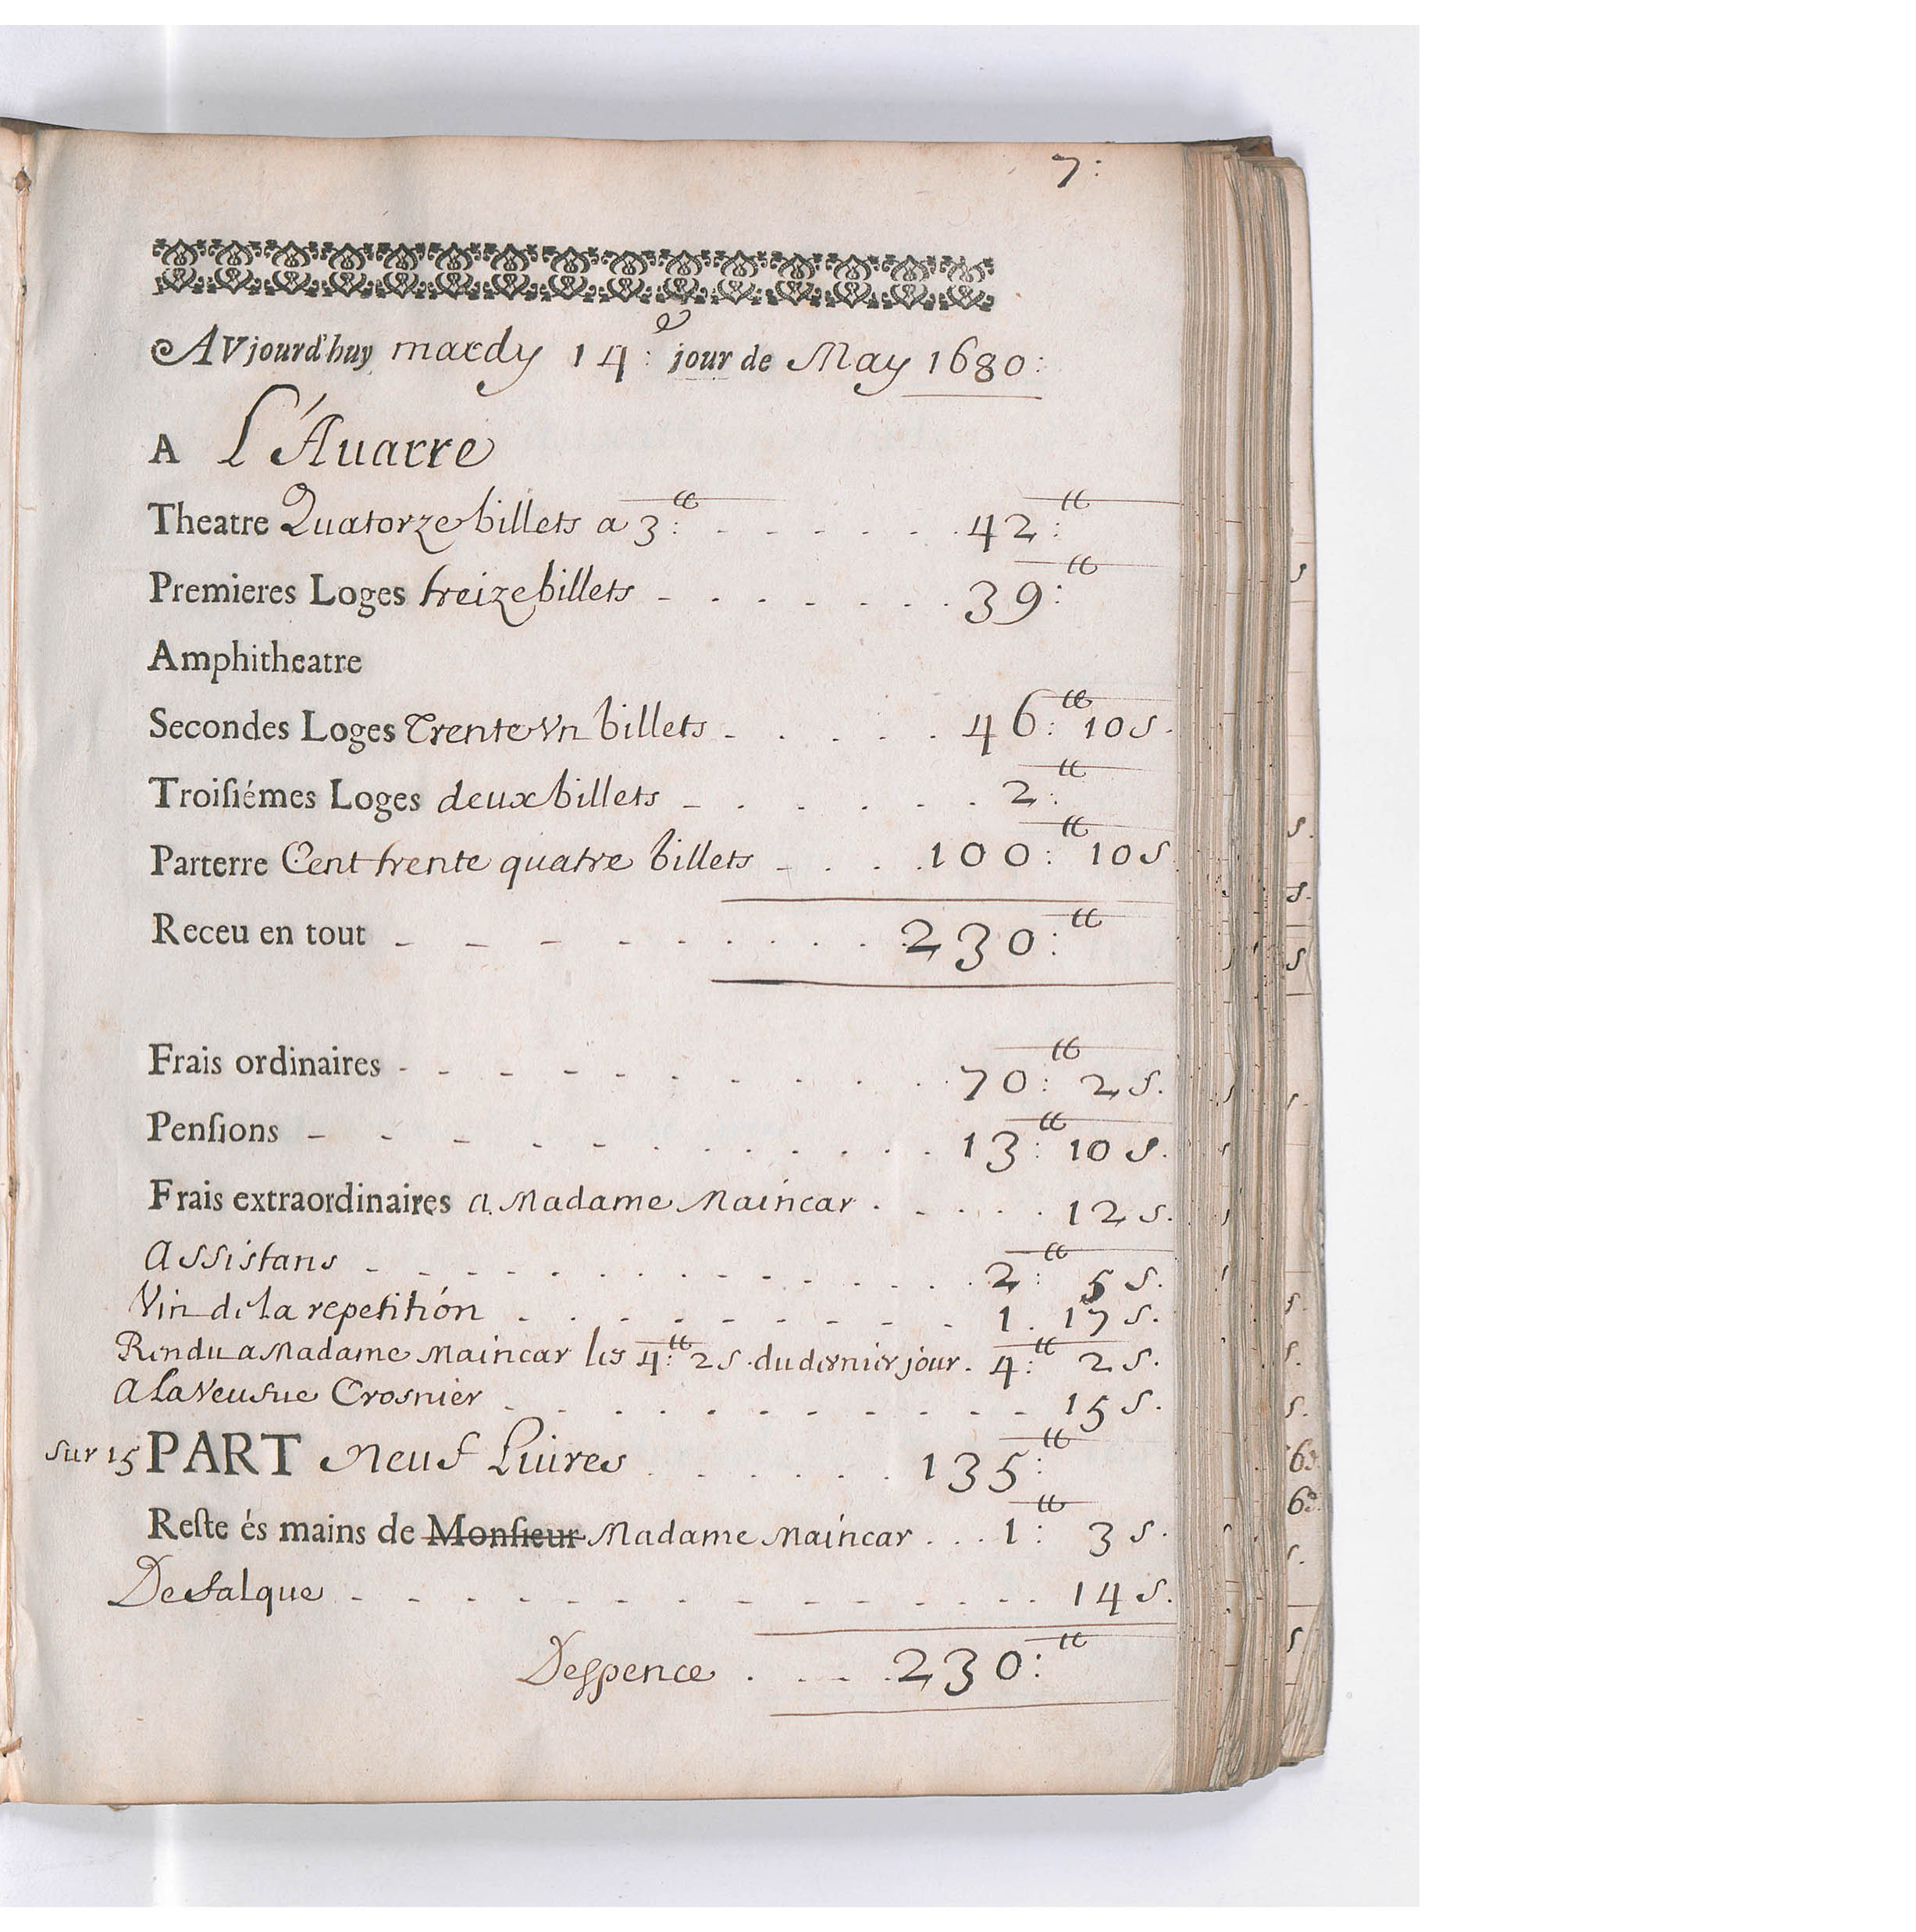 7:
AVjourd'huy mardy 14:e jour de May 1680:
A L'Auarre
Theatre Quatorze billets a 3:₶ - - - - - - 42:₶
Premieres Loges treize billets - - - - - - - 39:₶
Amphitheatre
Secondes Loges Trente Vn billets - - - - - 46:₶ 10 s.
Troiſiémes Loges deux billets - - - - - - 2:₶
Parterre Cent trente quatre billets - - - - 100:₶ 10 s
Receu en tout - - - - - - - - - 230:₶
Frais ordinaires - - - - - - - - - - 70:₶ 2 s.
Penſions - - - - - - - - - - - 13:₶ 10 s.
Frais extraordinaires a Madame Maincar . - . . . 12 s.
Assistans - - - - - - - - - - - - 2:₶ 5 s.
Vin de la repetition . - . . - - - - - 1. 17 s.
Rendu a Madame Maincar les 4:₶ 2 s. du dernier jour. 4:₶ 2 s.
A la Veufue Crosnier - - - - - - - - - - 15 s.
sur 15 PART Neuf Liures . . . . . 135:₶
Reſte és mains de ~~Monſieur~~ Madame Maincar . . . 1:₶ 3 s.
Defalque - - - - - - - - - - - - 14 s.
Despence . . - - . 230:₶